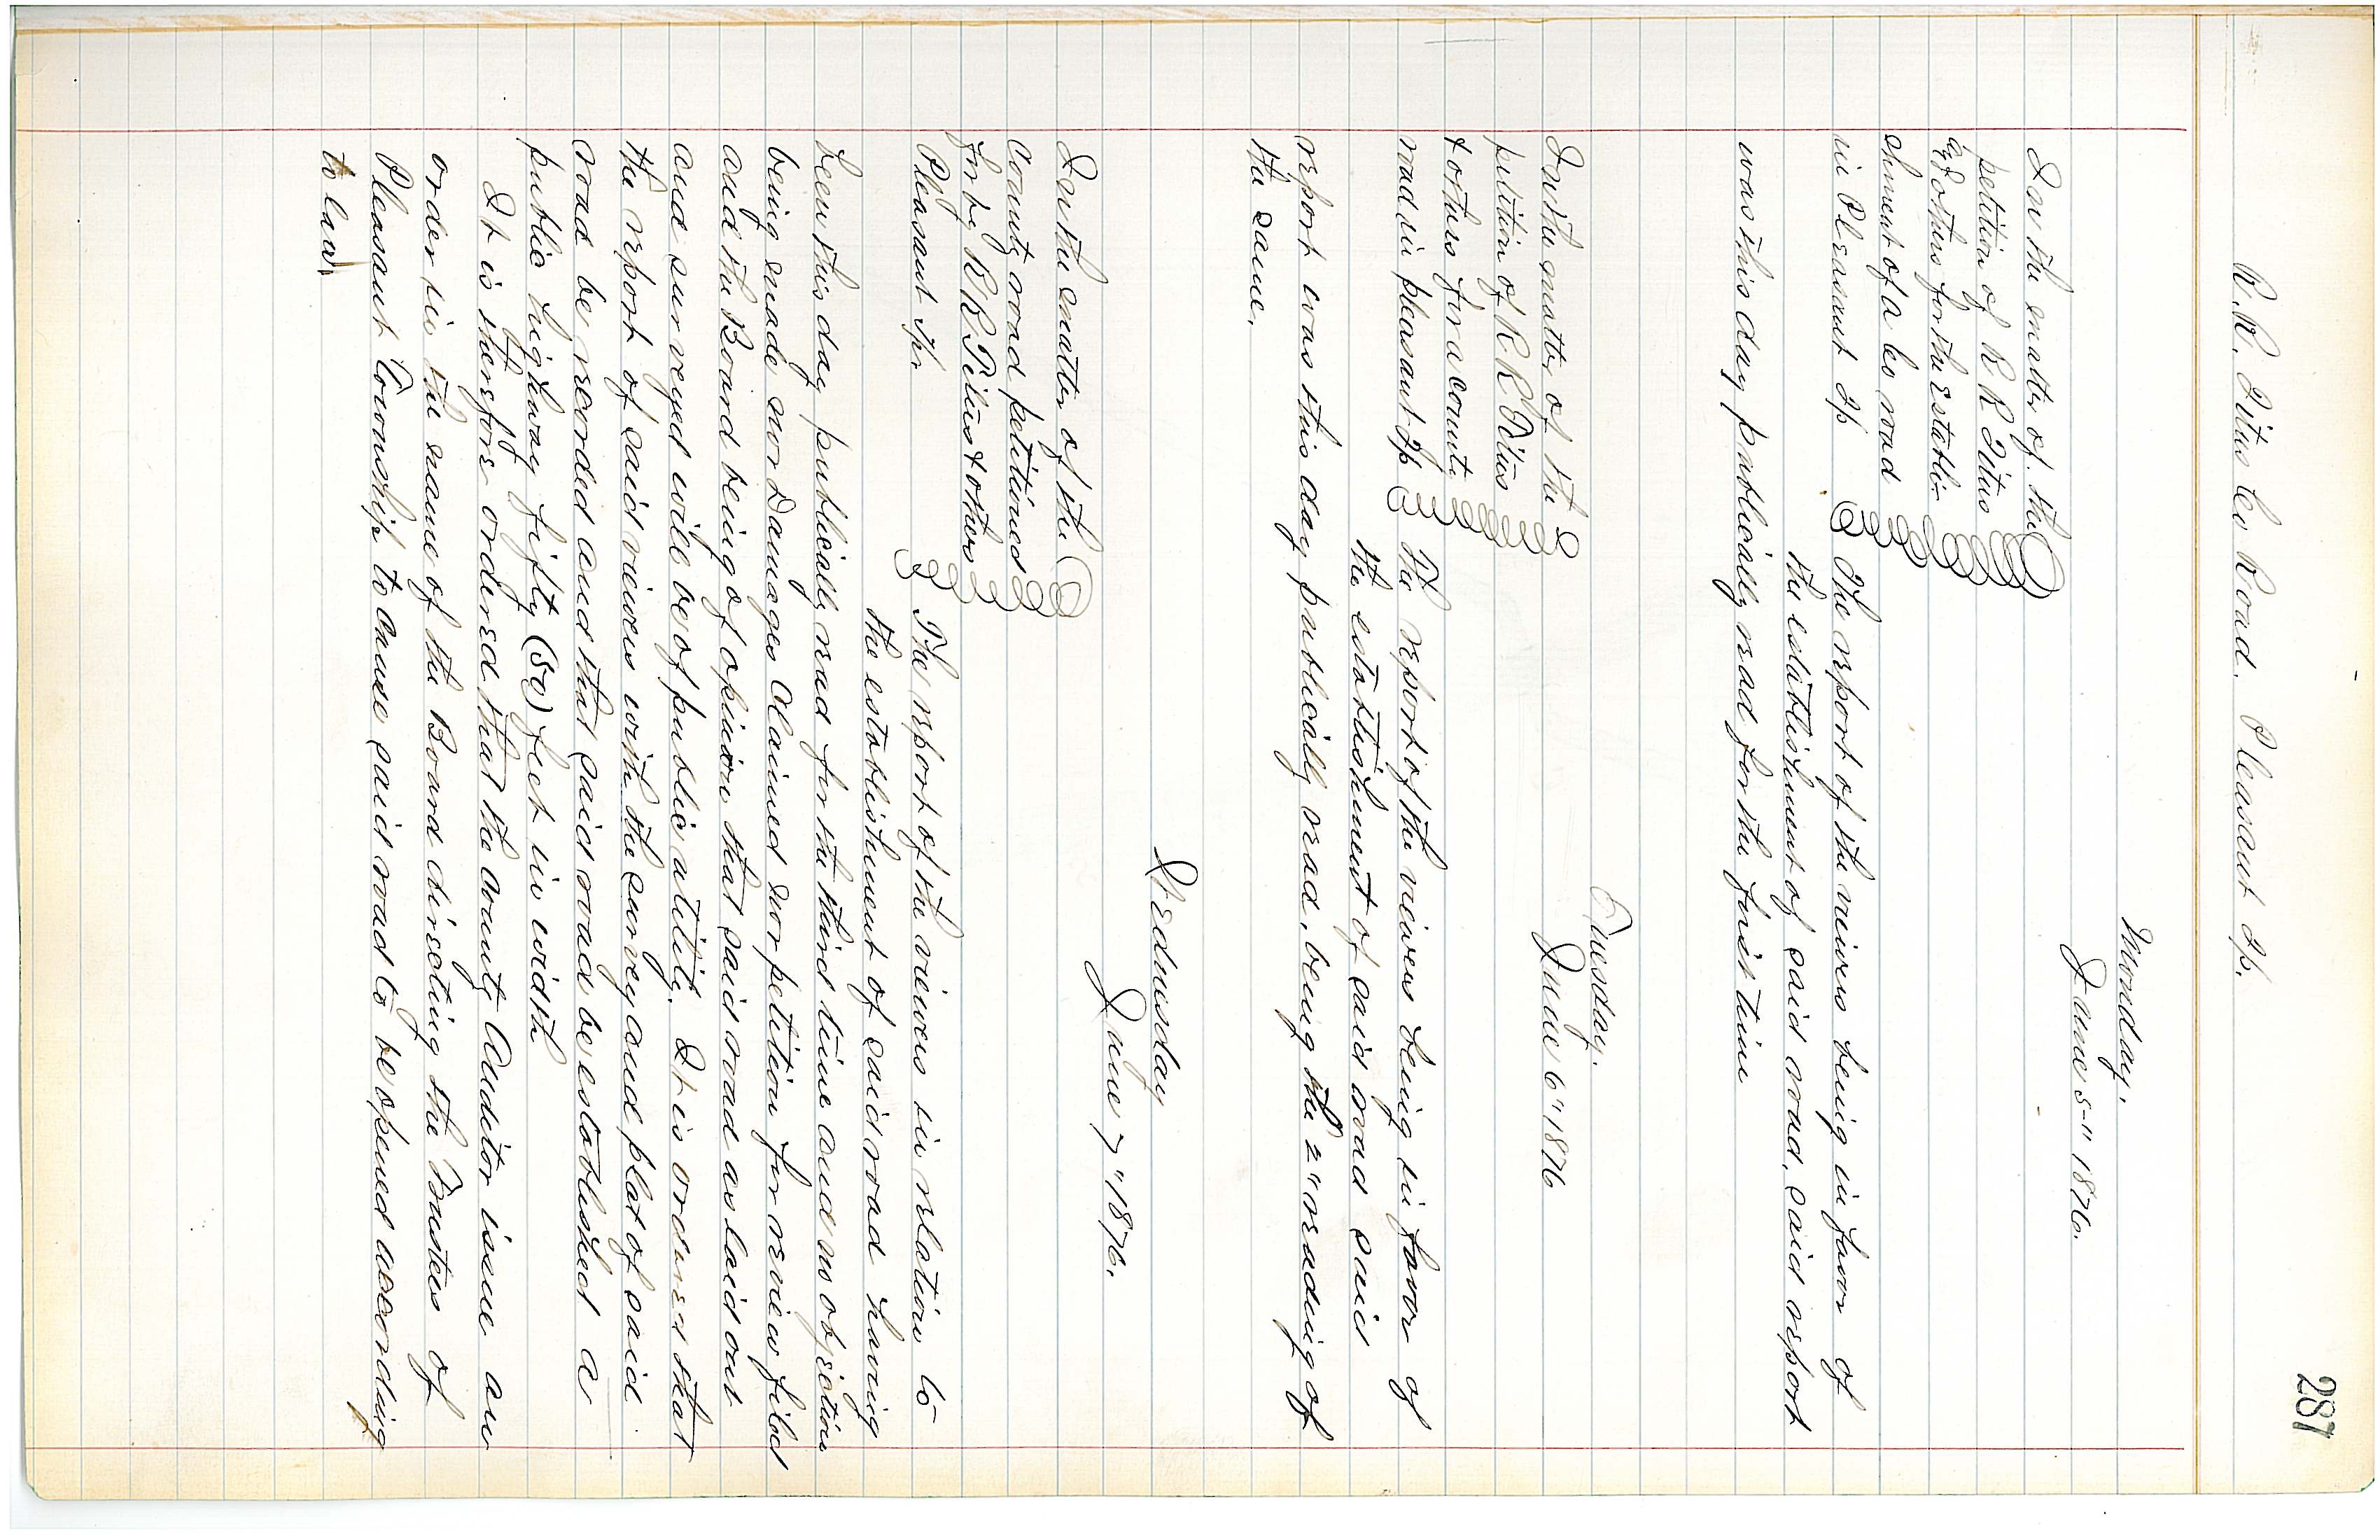 287
R. R. Titus Co Road. Pleasant Tp.
Monday.
June 5" 1876.
In the matter of the
petition of R R Titus
& others for the establi-
shment of a Co road
in Pleasant Tp
The report of the viewers being in favor of
the establishment of said road, said report
was this day publically read for the first time
Tuesday.
June 6" 1876
In the matter of the
petition of R R Titus
& others for a county
road in pleasant Tp
The report of the viewers being in favor of
the establishment of said road said
report was this day publically read, being the 2" reading of
the same.
Wednesday
June 7" 1876.
In the matter of the
county road petitioned
for by R R Titus & others
Pleasant Tp.
The report of the viewers in relation to
the establishment of said road having
been this day publically read for the third time and no objection
being made nor Damages Claimed nor petition for review filed
and the Board being of opinion that said road as laid out
and surveyed will be of public utility. It is ordered that
the report of said viewers with the survey and plat of said
road be recorded and that said road be established a
public highway fifty (50) feet in width
It is therefore ordered that the County Auditor issue an
order in the name of the Board directing the Trustees of
Pleasant Township to cause said road to be opened according
to law.